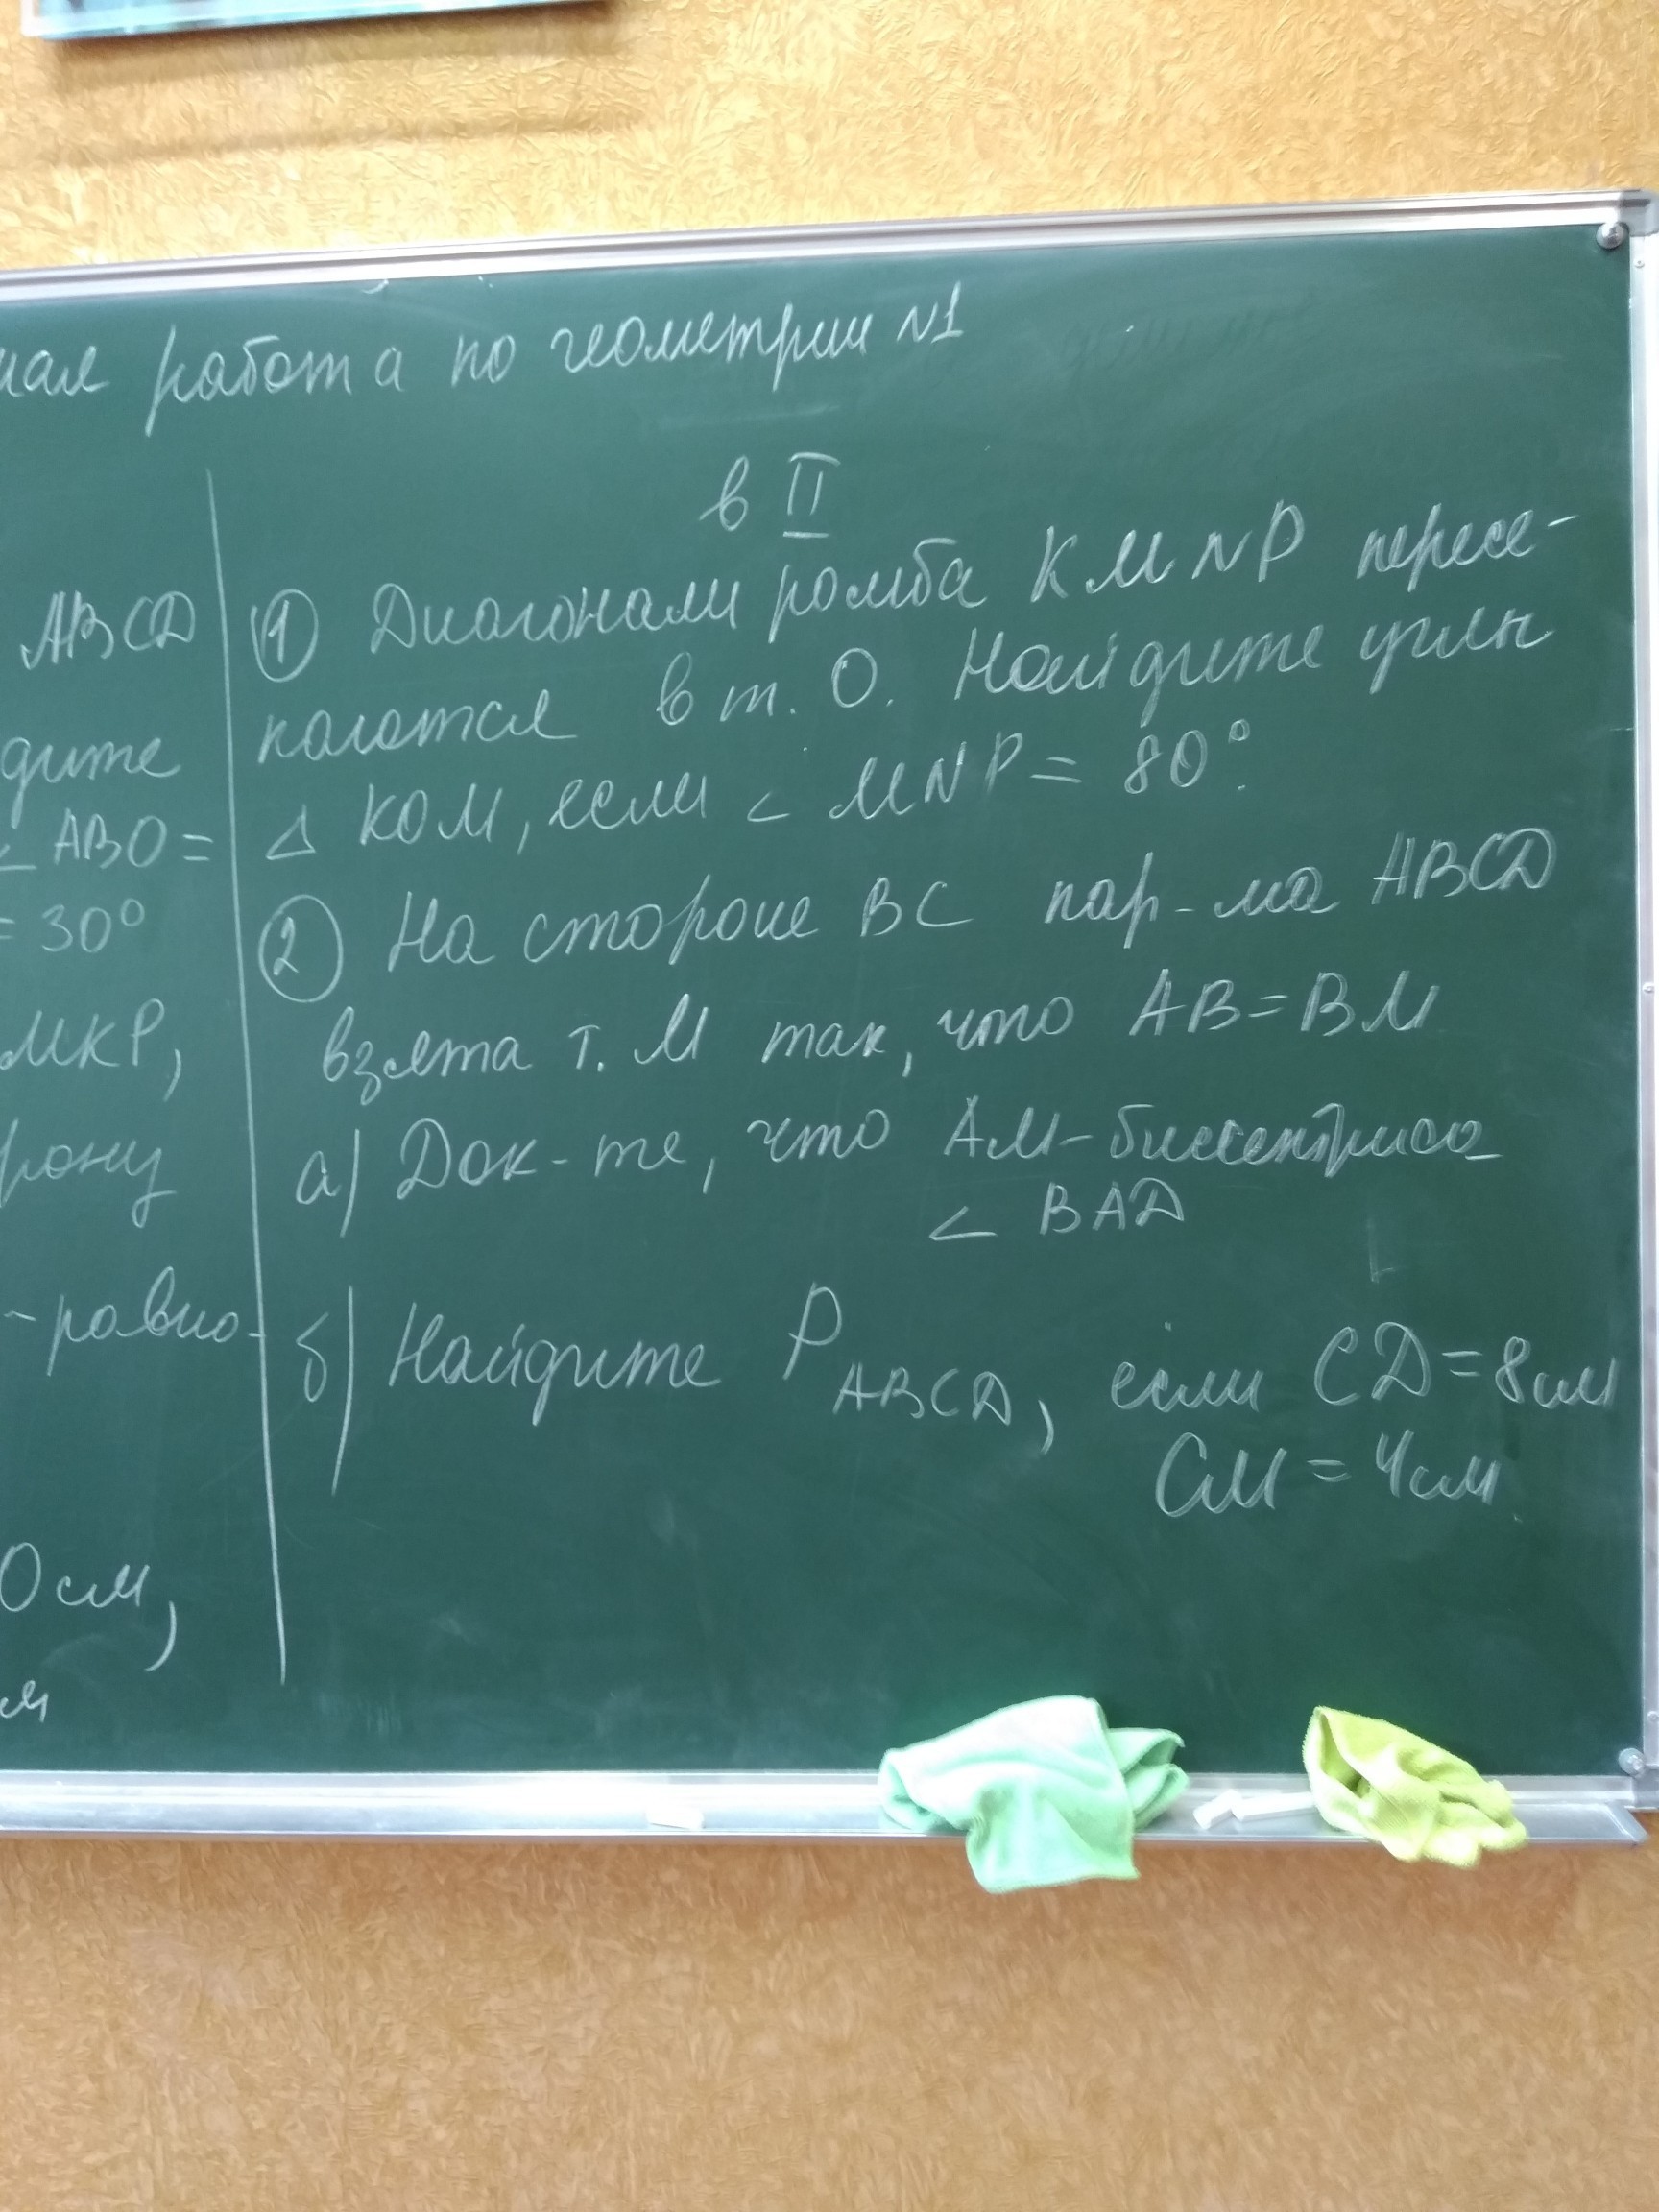 работа по геометрии №1
ABCD
дите
∠ ABO =
= 30°
МКР,
-равно-
0 см,
в II
① Диагонали ромба KMNP пересе-
каются в т. О. Найдите углы
△ КОМ, если ∠ MNP = 80°.
② На стороне ВС пар-ма ABCD
взята т. М так, что АВ = ВМ
а) Док-те, что АМ - биссектриса
∠ BAD
б) Найдите P ABCD, если CD = 8 см
СМ = 4 см